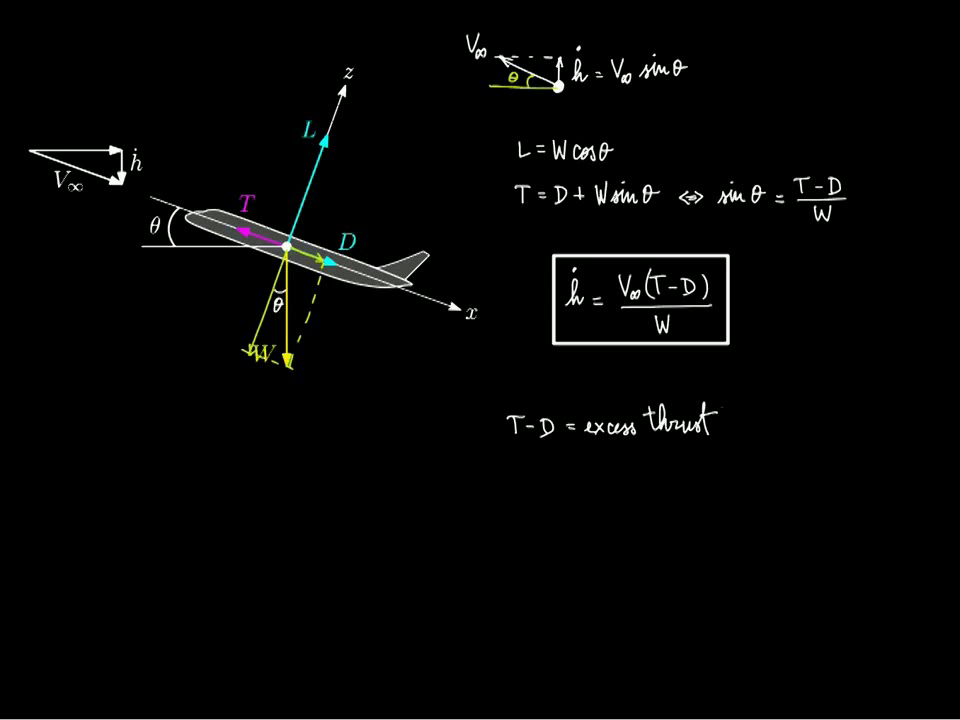 z
L
ḣ
V∞
T
θ
D
θ
x
W
V∞
θ
ḣ = V∞ sinθ
L = W cosθ
T = D + W sinθ ⇔ sinθ = (T-D)/W
ḣ = V∞(T-D)/W
T-D = excess thrust